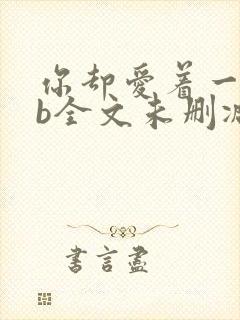 你却爱着一
b全文未删减
書言盡